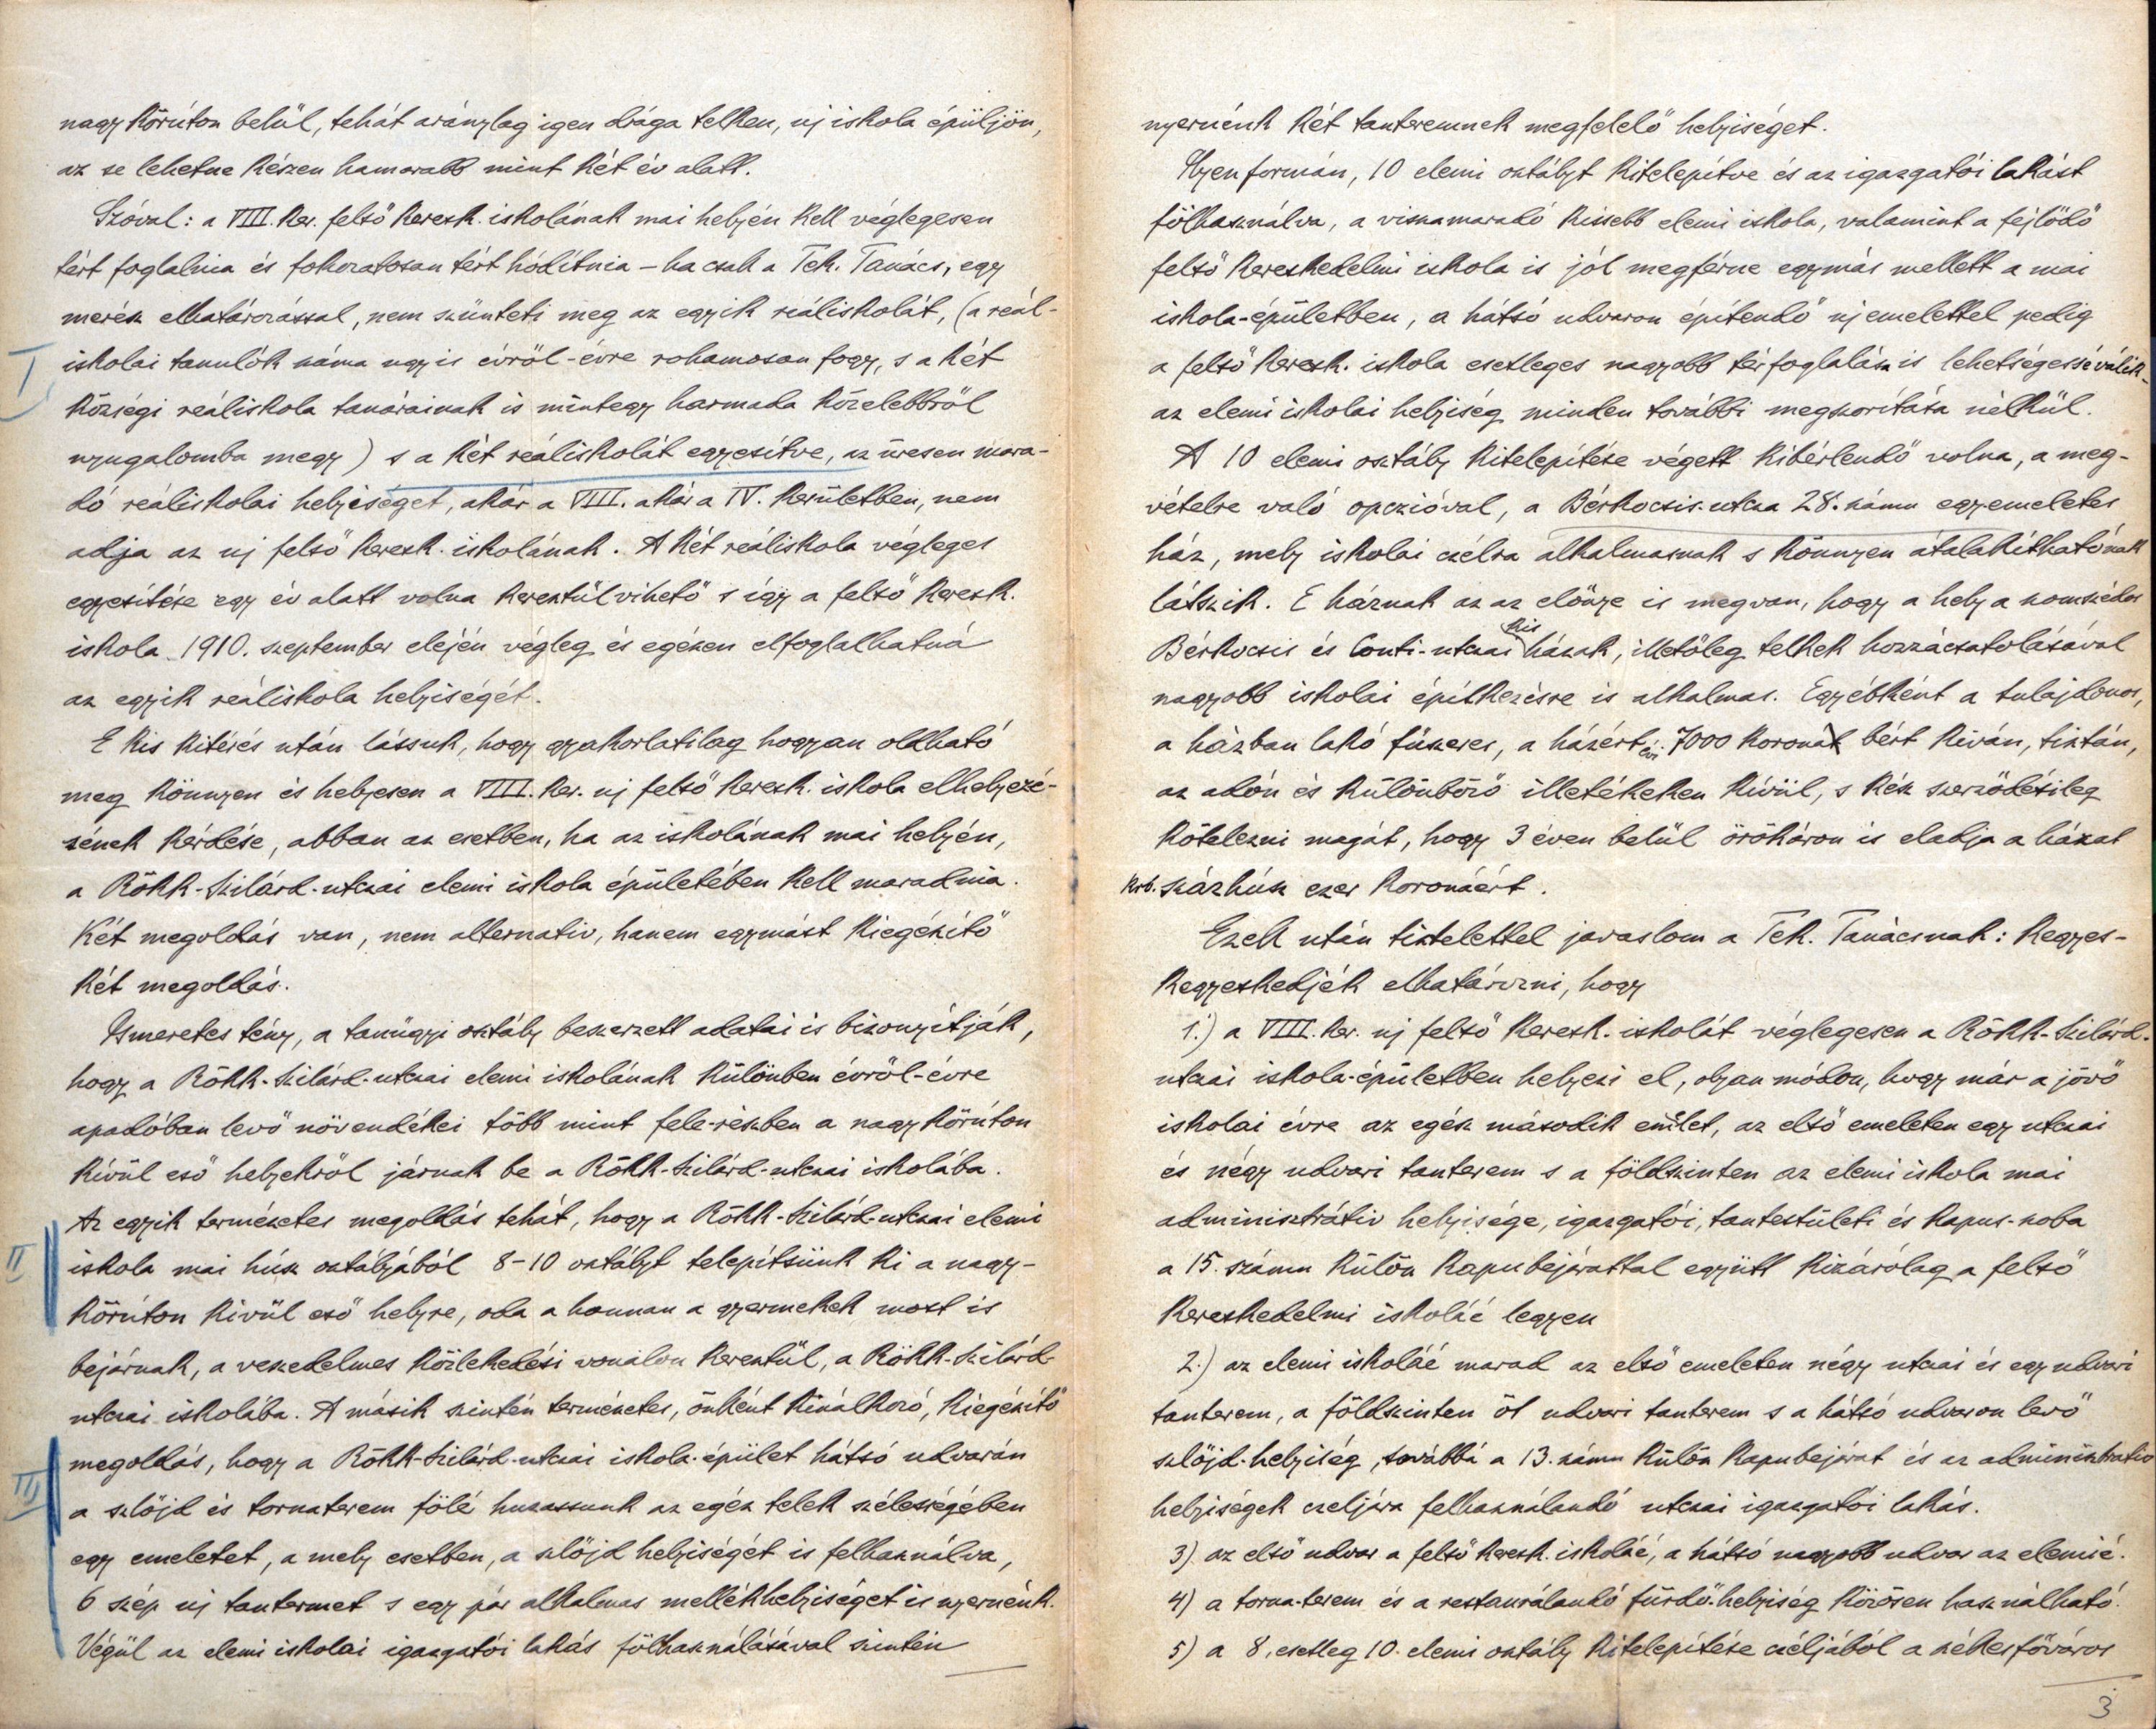 nagy körúton belül, tehát aránylag igen drága telken, uj iskola épüljön,
az se lehetne készen hamarabb mint két év alatt.
Szóval: a VIII. ker. felső keresk. iskolának mai helyén kell véglegesen
tért foglalnia és fokozatosan tért hódítnia – ha csak a Tek. Tanács, egy
merész elhatározással, nem szünteti meg az egyik reáliskolát, (a reál-
I
iskolai tanulók száma ugyis évről-évre rohamosan fogy, s a két
községi reáliskola tanárainak is mintegy harmada közelebbről
nyugalomba megy) s a két reáliskolát egyesítve, az üresen mara-
dó reáliskolai helyiséget, akár a VIII. akár a IV. kerületben, nem
adja az uj felső keresk. iskolának. A két reáliskola végleges
egyesítése egy év alatt volna keresztülvihető s így a felső keresk.
iskola 1910. szeptember elején végleg és egészen elfoglalhatná
az egyik reáliskola helyiségét.
E kis kitérés után lássuk, hogy gyakorlatilag hogyan oldható
meg könnyen és helyesen a VIII. ker. uj felső keresk. iskola elhelyezé-
sének kérdése, abban az esetben, ha az iskolának mai helyén,
a Rökk-Szilárd-utczai elemi iskola épületében kell maradnia.
Két megoldás van, nem alternativ, hanem egymást kiegészítő
két megoldás.
Ismeretes tény, a tanügyi osztály beszerzett adatai is bizonyítják,
hogy a Rökk-Szilárd-utczai elemi iskolának különben évről-évre
apadóban levő növendékei több mint fele-részben a nagy körúton
kívül eső helyekről járnak be a Rökk-Szilárd-utczai iskolába.
Az egyik természetes megoldás tehát, hogy a Rökk-Szilárd-utczai elemi
II
iskola mai húsz osztályából 8-10 osztályt telepítsünk ki a nagy-
körúton kivül eső helyre, oda a honnan a gyermekek most is
bejárnak, a veszedelmes közlekedési vonalon keresztül, a Rökk-Szilárd-
utczai iskolába. A másik szintén természetes, önként kínálkozó, kiegészítő
megoldás, hogy a Rökk-Szilárd-utczai iskola-épület hátsó udvarán
III
a szlöjd és tornaterem fölé huzassunk az egész telek szélességében
egy emeletet, a mely esetben, a szlöjd helyiségét is felhasználva,
6 szép uj tantermet s egy pár alkalmas mellékhelyiséget is nyernénk.
Végül az elemi iskolai igazgatói lakás fölhasználásával szintén
nyernénk két tanteremnek megfelelő helyiséget.
Ilyenformán, 10 elemi osztályt kitelepítve és az igazgatói lakást
fölhasználva, a visszamaradó kissebb elemi iskola, valamint a fejlődő
felső kereskedelmi iskola is jól megférne egymás mellett a mai
iskola-épületben, a hátsó udvaron építendő uj emelettel pedig
a felső keresk. iskola esetleges nagyobb térfoglalása is lehetségessé válik
az elemi iskolai helyiség minden további megszorítása nélkül.
A 10 elemi osztály kitelepítése végett kibérlendő volna, a meg-
vételre való opczióval, a Bérkocsis-utcza 28. számu egyemeletes
ház, mely iskolai czélra alkalmasnak s könnyen átalakíthatónak
látszik. E háznak az az előnye is megvan, hogy a hely a szomszédos
Bérkocsis és Conti-utczai kis házak, illetőleg telkek hozzácsatolásával
nagyobb iskolai építkezésre is alkalmas. Egyébként a tulajdonos,
a házban lakó fűszeres, a házért évi 7000 koronát bért kíván, tisztán,
az adón és különböző illetékeken kívül, s kész szerződésileg
kötelezni magát, hogy 3 éven belül örökáron is eladja a házat
krb. százhúsz ezer koronáért.
Ezek után tisztelettel javaslom a Tek. Tanácsnak: Kegyes-
kegyeskedjék elhatározni, hogy
1.) a VIII. ker. uj felső keresk. iskolát véglegesen a Rökk-Szilárd-
utczai iskola-épületben helyezi el, olyan módon, hogy már a jövő
iskolai évre az egész második emelet, az első emeleten egy utczai
és négy udvari tanterem s a földszinten az elemi iskola mai
adminisztrátiv helyisége, igazgatói, tantestületi és kapus-szoba
a 15. számu külön kapubejárattal együtt kizárólag a felső
kereskedelmi iskoláé legyen
2.) az elemi iskoláé marad az első emeleten négy utczai és egy udvari
tanterem, a földszinten öt udvari tanterem s a hátsó udvaron levő
szlöjd-helyiség, továbbá a 13. számu külön kapubejárat és az adminisztrativ
helyiségek czéljára felhasználandó utczai igazgatói lakás.
3). az első udvar a felső keresk. iskoláé, a hátsó nagyobb udvar az elemié.
4) a torna-terem és a restaurálandó fürdő-helyiség közösen használható.
5) a 8, esetleg 10. elemi osztály kitelepítése czéljából a székesfőváros
3